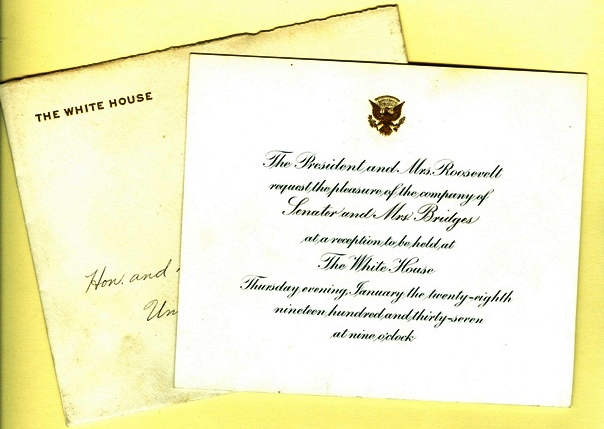 THE WHITE HOUSE
Hon. and
Un
The President and Mrs. Roosevelt
request the pleasure of the company of
Senator and Mrs. Bridges
at a reception to be held at
The White House
Thursday evening, January the twenty-eighth
nineteen hundred and thirty-seven
at nine o'clock